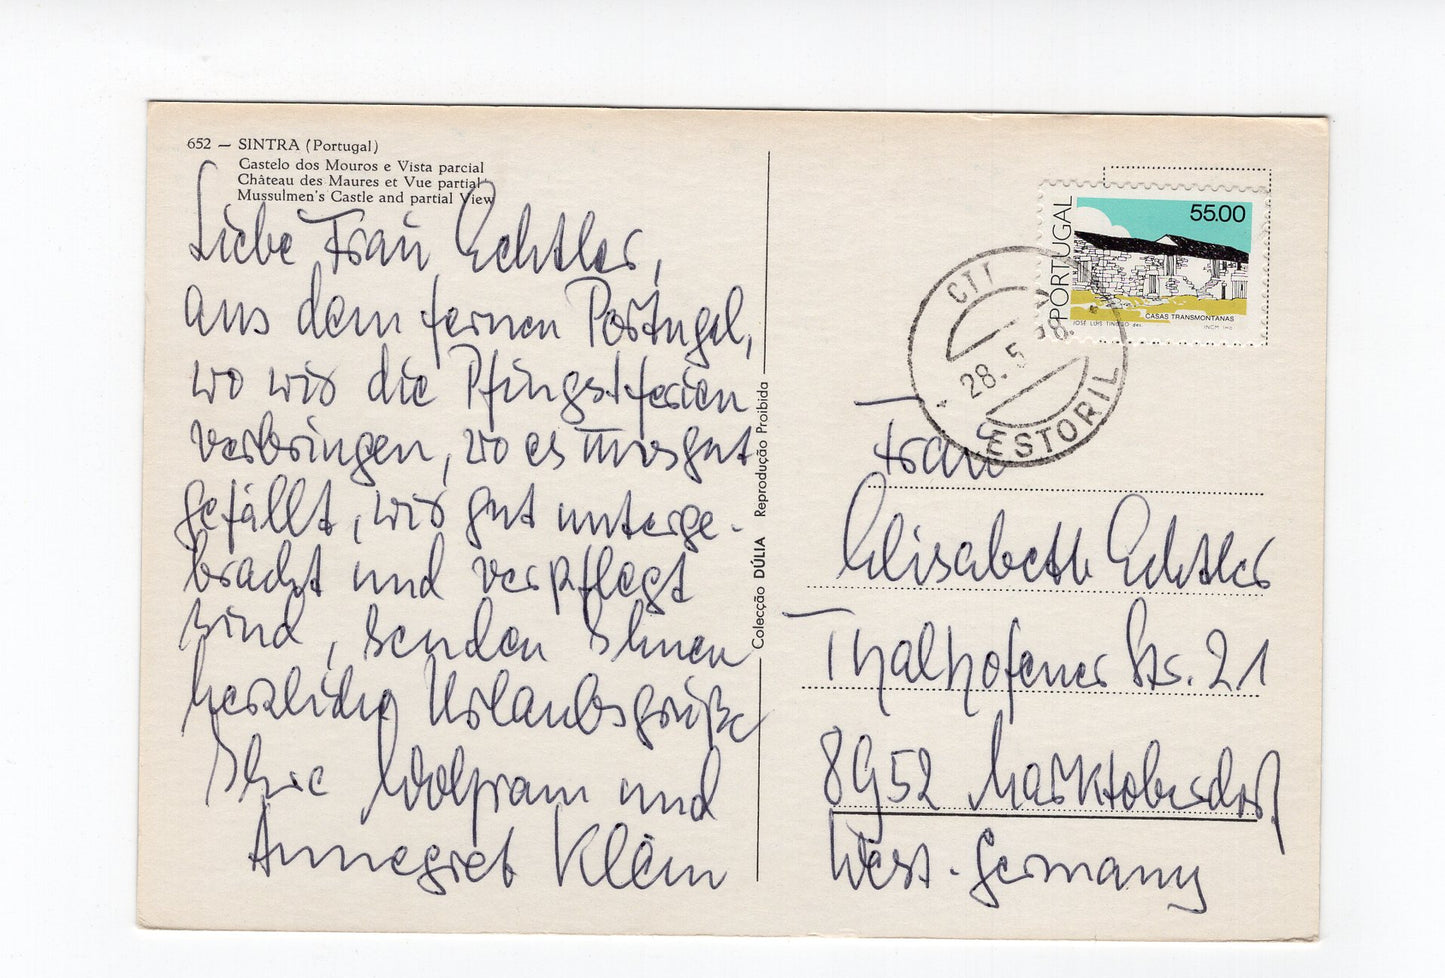 652 — SINTRA (Portugal)
Castelo dos Mouros e Vista parcial
Château des Maures et Vue partial
Mussulmen's Castle and partial View
Liebe Frau Echtler,
aus dem fernen Portugal,
wo wir die Pfingstferien
verbringen, wo es uns gut
gefällt, wir gut unterge-
bracht und verpflegt
sind, senden Ihnen
herzliche Urlaubsgrüße
Ihre Wolfram und
Annegret Klein
Colecção DÚLIA Reprodução Proibida
PORTUGAL
55.00
CASAS TRANSMONTANAS
JOSÉ LUIS TINOCO des.
INCM
CTT
28. 5
ESTORIL
Frau
Elisabeth Echtler
Thalhofener Str. 21
8952 Marktoberdorf
West-Germany